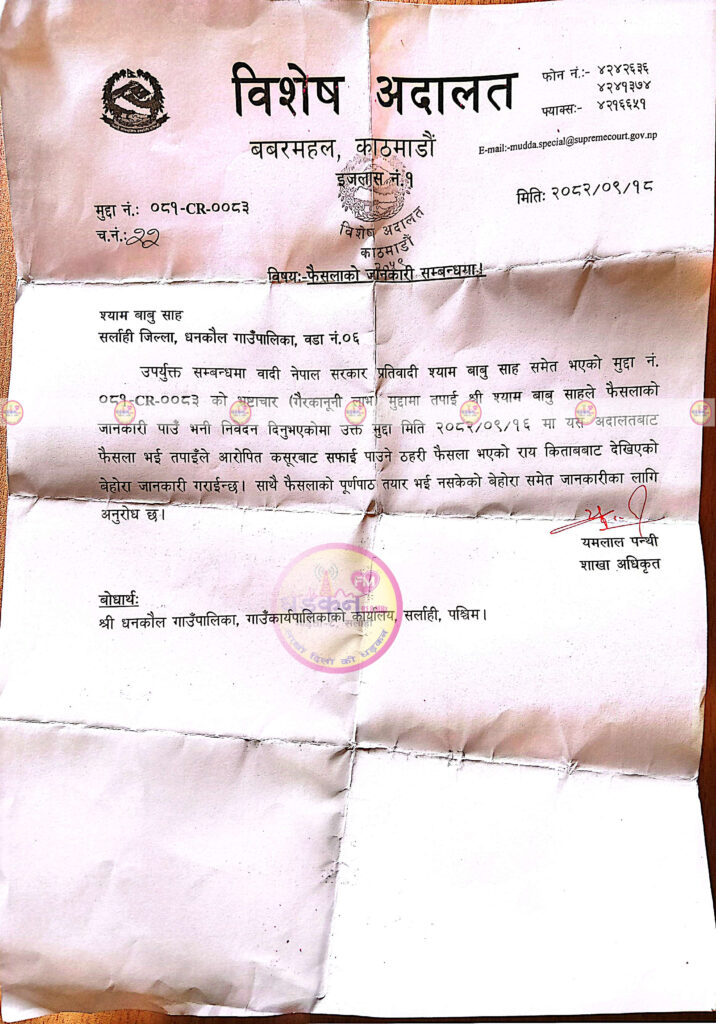 विशेष अदालत
बबरमहल, काठमाडौं
इजलास नं.१
फोन नं.:- ४२४२६३६
४२४१३७४
फ्याक्स:- ४२१६६५१
E-mail:-mudda.special@supremecourt.gov.np
मिति: २०८२/०९/१८
मुद्दा नं.: ०८१-CR-००८३
च.नं.: २२
विशेष अदालत
काठमाडौं
२०५९
विषय:-फैसलाको जानकारी सम्बन्धमा।
श्याम बाबु साह
सर्लाही जिल्ला, धनकौल गाउँपालिका, वडा नं.०६
उपर्युक्त सम्बन्धमा वादी नेपाल सरकार प्रतिवादी श्याम बाबु साह समेत भएको मुद्दा नं.
०८१-CR-००८३ को भ्रष्टाचार (गैरकानूनी लाभ) मुद्दामा तपाई श्री श्याम बाबु साहले फैसलाको
जानकारी पाउँ भनी निवेदन दिनुभएकोमा उक्त मुद्दा मिति २०८२/०९/१६ मा यस अदालतबाट
फैसला भई तपाइँले आरोपित कसूरबाट सफाई पाउने ठहरी फैसला भएको राय किताबबाट देखिएको
बेहोरा जानकारी गराईन्छ। साथै फैसलाको पूर्णपाठ तयार भई नसकेको बेहोरा समेत जानकारीका लागि
अनुरोध छ।
यमलाल पन्थी
शाखा अधिकृत
बोधार्थ:
श्री धनकौल गाउँपालिका, गाउँकार्यपालिकाको कार्यालय, सर्लाही, पश्चिम।
FM
धड्कन
लाखौं दिलों की धड़कन